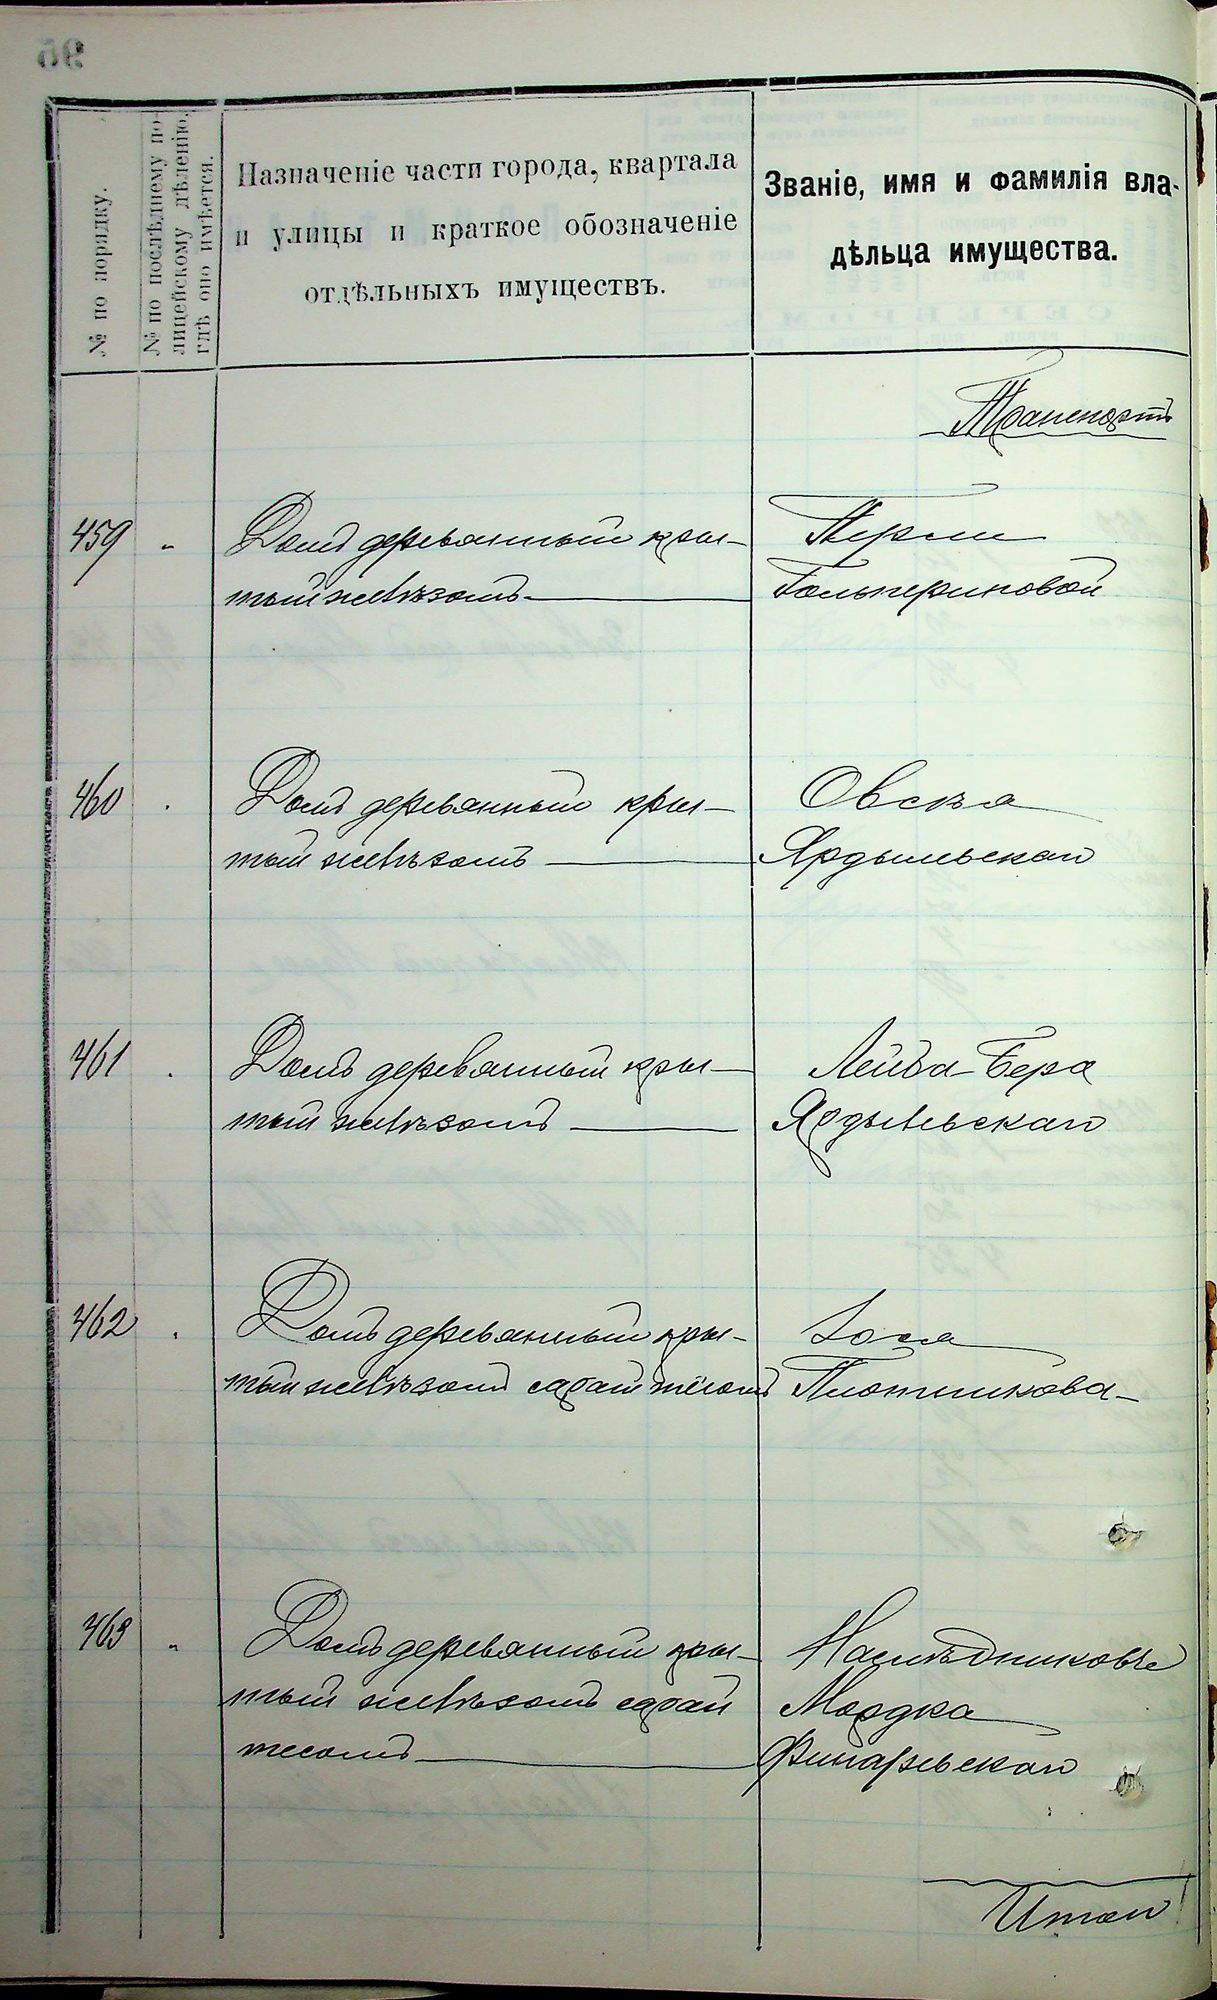 № по порядку.
№ по послѣднему по-
лицейскому дѣленію,
гдѣ оно имѣется.
Назначеніе части города, квартала
и улицы и краткое обозначеніе
отдѣльныхъ имуществъ.
Званіе, имя и фамилія вла-
дѣльца имущества.
Транспортъ
459 " Домъ деревянный кры-
тый желѣзомъ
Перли
Гольпериновой
460 Домъ деревянный кры-
тый желѣзомъ
Овсѣя
Ярдыльскаго
461 Домъ деревянный кры-
тый желѣзомъ
Лейба-Бера
Ярдыльскаго
462 Домъ деревянный кры-
тый желѣзомъ сарай тёсомъ
Плотникова
463 " Домъ деревянный кры-
тый желѣзомъ сарай
тесомъ
Наслѣдниковъ
Мордка
Итого